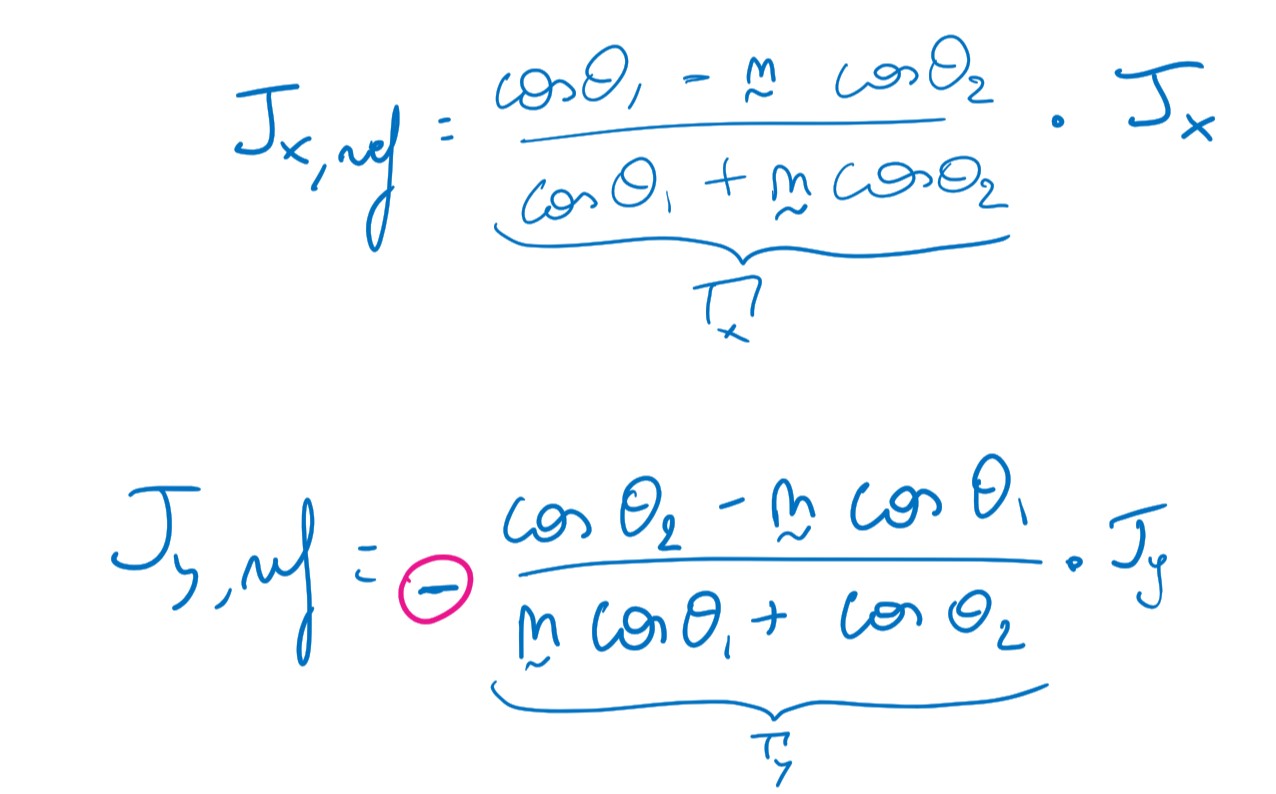 J_{x,ref} = \frac{cos θ_1 - \underset{\sim}{n} cos θ_2}{cos θ_1 + \underset{\sim}{n} cos θ_2} \cdot J_x
Γ_x
J_{y,ref} = - \frac{cos θ_2 - \underset{\sim}{n} cos θ_1}{\underset{\sim}{n} cos θ_1 + cos θ_2} \cdot J_y
Γ_y